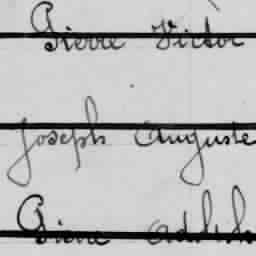 Pierre Victor
Joseph Auguste
Pierre Adolph